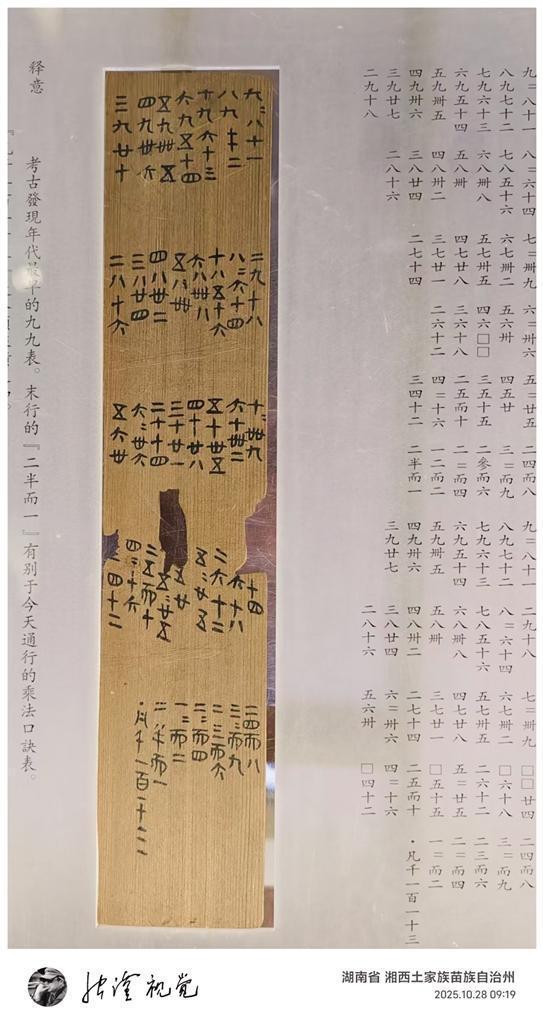 九=八十一 八=六十四 七=卌九 六=卅六 五=廿五 二四而八 九=八十一 二九十八 七=卌九 □□廿四 二四而八
八九七十二 七八五十六 六七卌二 五六卅 四五廿 三=而九 八九七十二 八=六十四 六七卌二 □六十八 三=而九
七九六十三 六八卌八 五七卅五 四六□□ 三五十五 二參而六 七九六十三 七八五十六 五七卅五 二六十二 二三而六
六九五十四 五八卌 四七廿八 三六十八 二五而十 二=而四 六九五十四 六八卌八 四七廿八 五=廿五 二=而四
五九卌五 四八卅二 三七廿一 二六十二 四=十六 一二而二 五九卌五 五八卌 三七廿一 □五十五 一=而二
四九卅六 三八廿四 二七十四 三四十二 二半而一 四九卅六 四八卅二 二七十四 二五而十 ·凡千一百一十三
三九廿七 二八十六 三九廿七 三八廿四 六=卅六 四=十六
二九十八 二八十六 五六卅 □四十二
九=八十一 二九十八 七=卌九 廿四 二四而八
八九七十二 八=六十四 六七卌二 六十八 三=而九
七九六十三 七八五十六 五七卅五 二六十二 二三而六
六九五十四 六八卌八 四七廿八 五=廿五 二=而四
五九卌五 五八卌 三七廿一 五十五 一=而二
四九卅六 四八卅二 二七十四 二五而十 二半而一
三九廿七 三八廿四 六=卅六 四=十六 ·凡千一百一十三
二八十六 五六卅 四十二
釋意
考古發現年代最早的九九表。末行的『二半而一』有别于今天通行的乘法口訣表。
湖南省 湘西土家族苗族自治州
2025.10.28 09:19